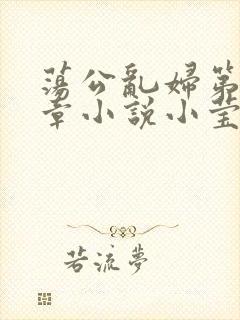 蕩公亂婦第
章小説小莹
若流夢